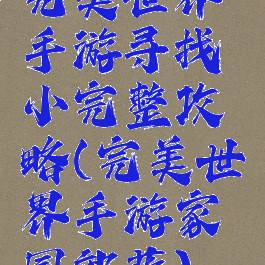 完美世界
手游寻找
小完整攻
略(完美世
界手游家
园